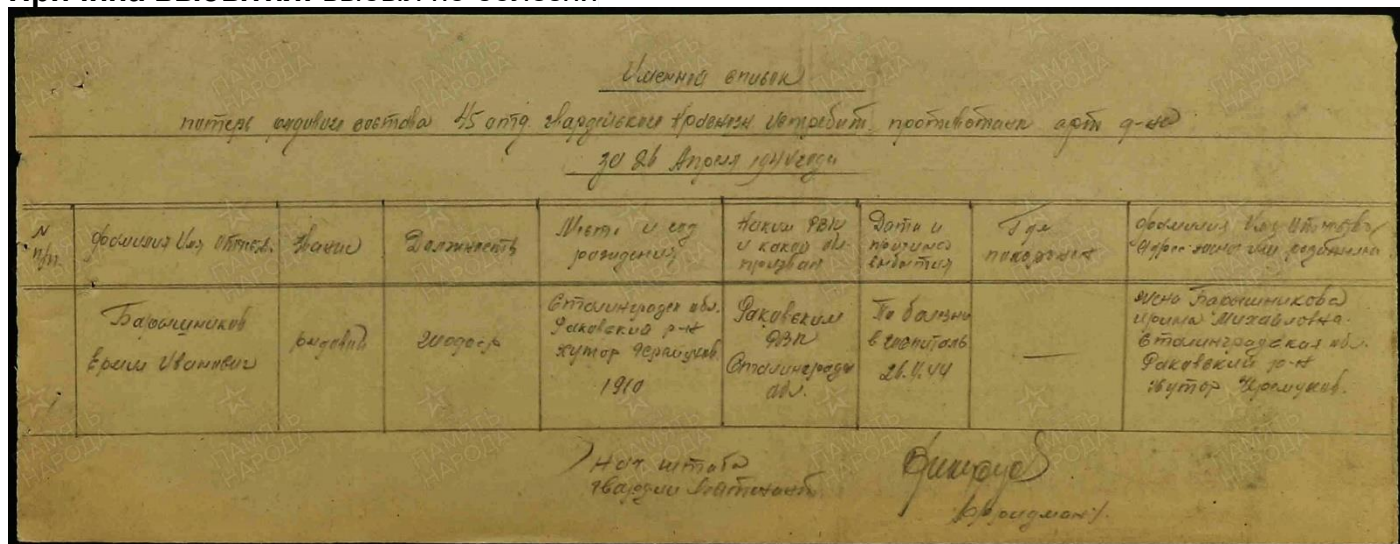 Причина выбытия выбыл по болезни
Именной список
потерь рядового состава 45 отд. гвардейского Краснозн истребит. противотанк арт д-на
за 26 Апреля 1944 года
N п/п.
Фамилия Имя Отчеств.
Звание
Должность
Место и год рождения
Каким РВК и какой обл. призван
Дата и причина выбытия
Где похоронен
Фамилия Имя Отчество Адрес жены или родителей
Барышников
Ефим Иванович
рядовой
Сталинградск обл.
Раковский р-н
хутор
1910
Раковским
РВК
Сталинградск
обл.
По болезни
в госпиталь
26.4.44
—
Жена Барышникова
Ирина Михайловна.
Сталинградская обл.
Раковский р-н
хутор
Нач. штаба
гвардии лейтенант
/Фридман/.
ПАМЯТЬ НАРОДА